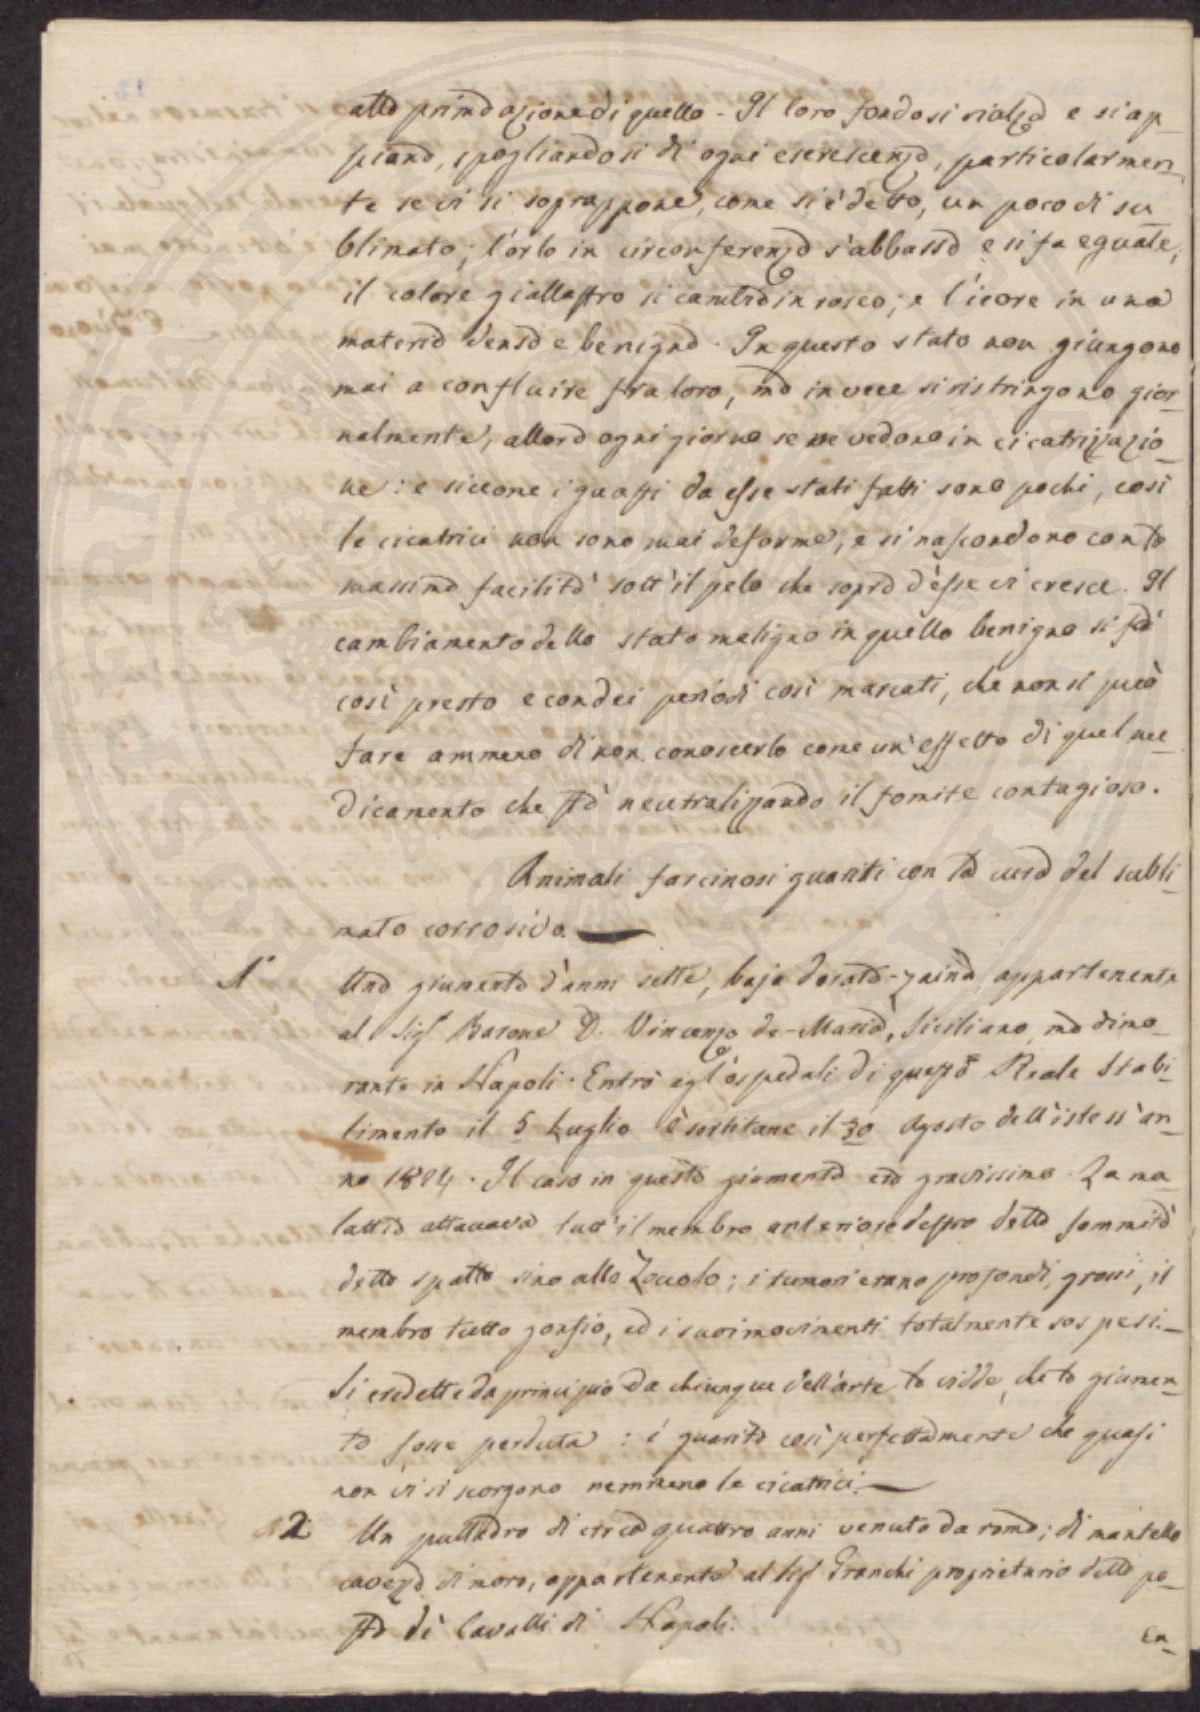 alla prima azione di quello - Il loro fondo si rialza e si ap-
piana, spogliandosi di ogni escrescenza, particolarmen-
te se vi si soprappone, come si è detto, un poco di su-
blimato; l'orlo in circonferenza s'abbassa e si fa eguale,
il colore giallastro si cambia in roseo; e l'icore in una
materia densa e benigna. In questo stato non giungono
mai a confluire fra loro, ma invece si ristringono gior-
nalmente, allora ogni giorno se ne vedono in cicatrizzazio-
ne: e siccome i guasti da esse stati fatti sono pochi, così
le cicatrici non sono mai deforme, e si nascondono con la
massima facilità sott'il pelo che sopra d'esse vi cresce. Il
cambiamento dello stato maligno in quello benigno si fà
così presto e con dei periodi così marcati, che non si può
fare ammeno di non conoscerlo come un'effetto di quel me-
dicamento che stà neutralizzando il fomite contagioso.
Animali farcinosi guariti con la cura del subli-
mato corrosivo.
1° Una giumenta d'anni sette, baja dorata-zaina, appartenente
al Sig.r Barone D. Vincenzo de-Maria, Siciliano, ma dimo-
rante in Napoli. Entrò agl'ospedali di questo Reale Stabi-
limento il 5 Luglio è sortitane il 30 Agosto dell'istess'an-
no 1824. Il caso in questa giumenta era gravissimo. La ma-
lattia attaccava tutt'il membro anteriore destro della sommità
della spalla sino allo Zoccolo; i tumori erano profondi, grossi, il
membro tutto gonfio, ed i suoi movimenti totalmente sospesi. -
Si credette da principio da chiunque dell'arte la vidde, che la giumen-
ta fosse perduta: è guarita così perfettamente che quasi
non vi si scorgono nemmeno le cicatrici. -
2 Un pulledro di circa quattro anni venuto da roma; di mantello
cavezza di moro, appartenente al Sig.r Franchi proprietario della po-
sta dè Cavalli di Napoli.
En-